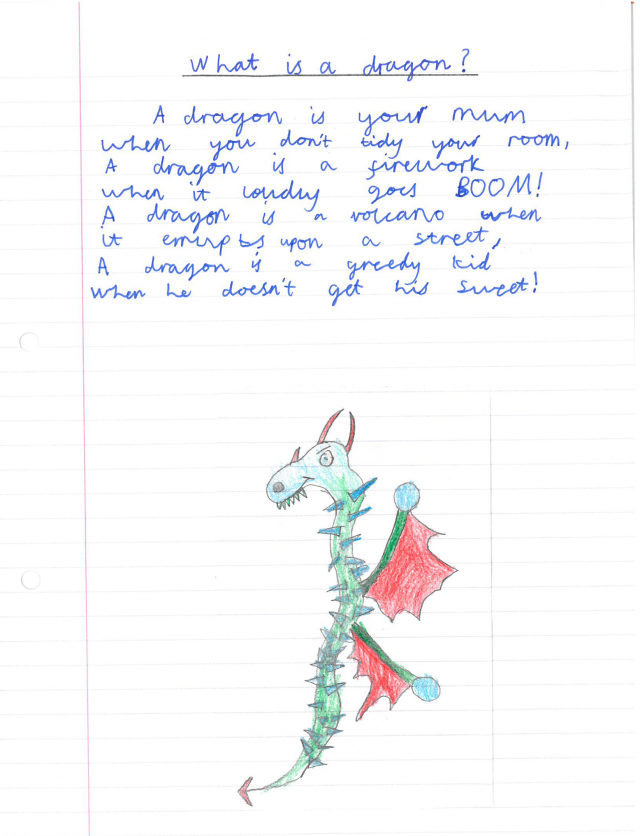 What is a dragon?
A dragon is your mum
when you don't tidy your room,
A dragon is a firework
when it loudly goes BOOM!
A dragon is a volcano when
it errupts upon a street,
A dragon is a greedy kid
when he doesn't get his sweet!